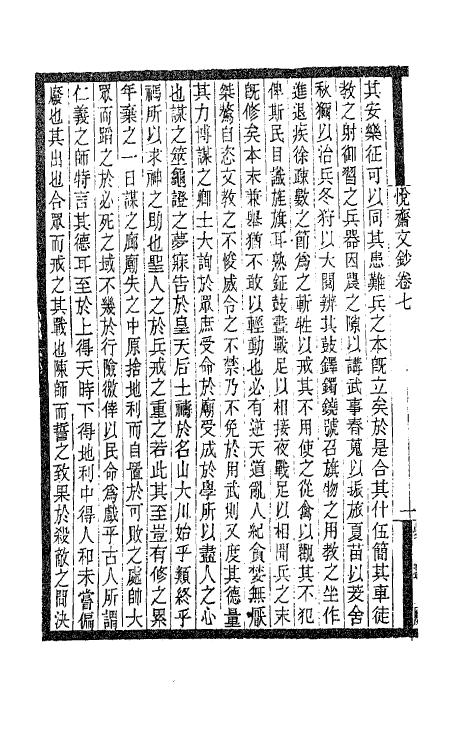 悅齋文鈔卷七
其安樂征可以同其患難兵之本旣立矣於是合其什伍簡其車徒
教之射御習之兵器因農之隙以講武事春蒐以振旅夏苗以茇舍
秋獮以治兵冬狩以大閱辨其鼓鐸鐲鐃號名旗物之用教之坐作
進退疾徐疎數之節爲之斬牲以戒其不用使之從禽以觀其不犯
俾斯民目識旌旗耳熟鉦鼓晝戰足以相接夜戰足以相聞兵之末
旣修矣本末兼舉猶不敢以輕動也必有逆天道亂人紀貪婪無厭
桀驁自恣文教之不悛威令之不禁乃不免於用武則又度其德量
其力博謀之卿士大詢於眾庶受命於廟受成於學所以盡人之心
也謀之筮龜證之夢寐告於皇天后土禱於名山大川始乎類終乎
禡所以求神之助也聖人之於兵戒之重之若此其至豈有修之累
年棄之一日謀之廊廟失之中原捨地利而自置於可敗之處師大
眾而蹈之於必死之域不幾於行險徼倖以民命爲戲乎古人所謂
仁義之師特言其德耳至於上得天時下得地利中得人和未嘗偏
廢也其出也合眾而戒之其戰也陳師而誓之致果於殺敵之間決